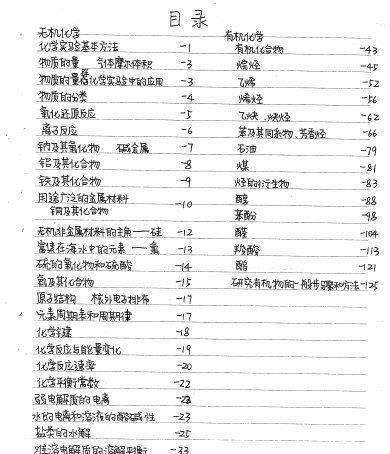 目录
无机化学
化学实验基本方法 -1
物质的量 气体摩尔体积 -3
物质的量在化学实验中的应用 -3
物质的分类 -4
氧化还原反应 -5
离子反应 -6
钠及其氧化物 碱金属 -7
铝及其化合物 -8
铁及其化合物 -9
用途广泛的金属材料
铜及其化合物 -10
无机非金属材料的主角——硅 -12
富集在海水中的元素——氯 -13
硫的氧化物和硫酸 -14
氨及其化合物 -15
原子结构 核外电子排布 -17
元素周期表和周期律 -17
化学键 -18
化学反应与能量变化 -19
化学反应速率 -20
化学平衡常数 -22
弱电解质的电离 -22
水的电离和溶液的酸碱性 -23
盐类的水解 -25
难溶电解质的溶解平衡 -33
有机化学
有机化合物 -43
烷烃 -45
乙烯 -52
烯烃 -56
乙炔、炔烃 -62
苯及其同系物、芳香烃 -66
石油 -79
煤 -81
烃的衍生物 -83
醇 -88
苯酚 -98
醛 -104
羧酸 -113
酯 -121
研究有机物的一般步骤和方法 -125